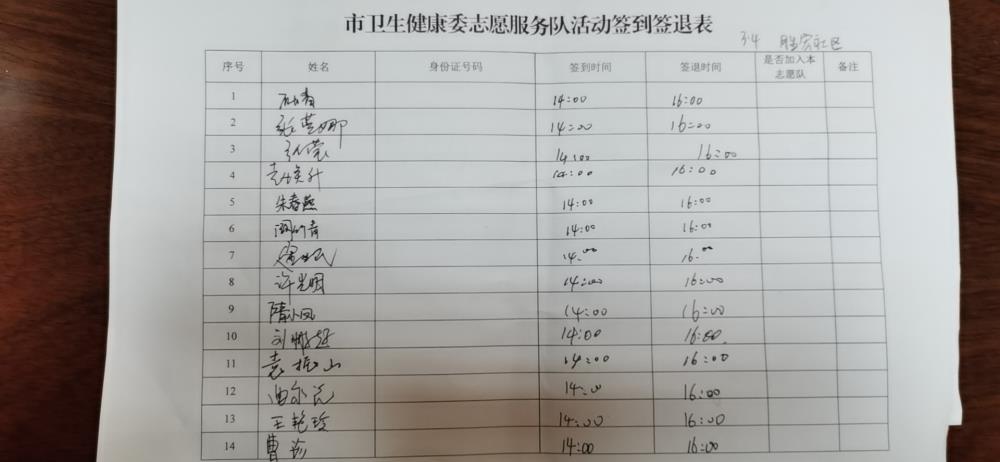 市卫生健康委志愿服务队活动签到签退表
3.4 社区
序号 姓名 身份证号码 签到时间 签退时间 是否加入本志愿队 备注
1 14:00 16:00
2 张 娜 14:00 16:00
3 14:00 16:00
4 14:00 16:00
5 朱春燕 14:00 16:00
6 14:00 16:00
7 14:00 16:00
8 许光明 14:00 16:00
9 隋小凤 14:00 16:00
10 刘 14:00 16:00
11 袁振山 14:00 16:00
12 14:00 16:00
13 王艳玲 14:00 16:00
14 曹 14:00 16:00